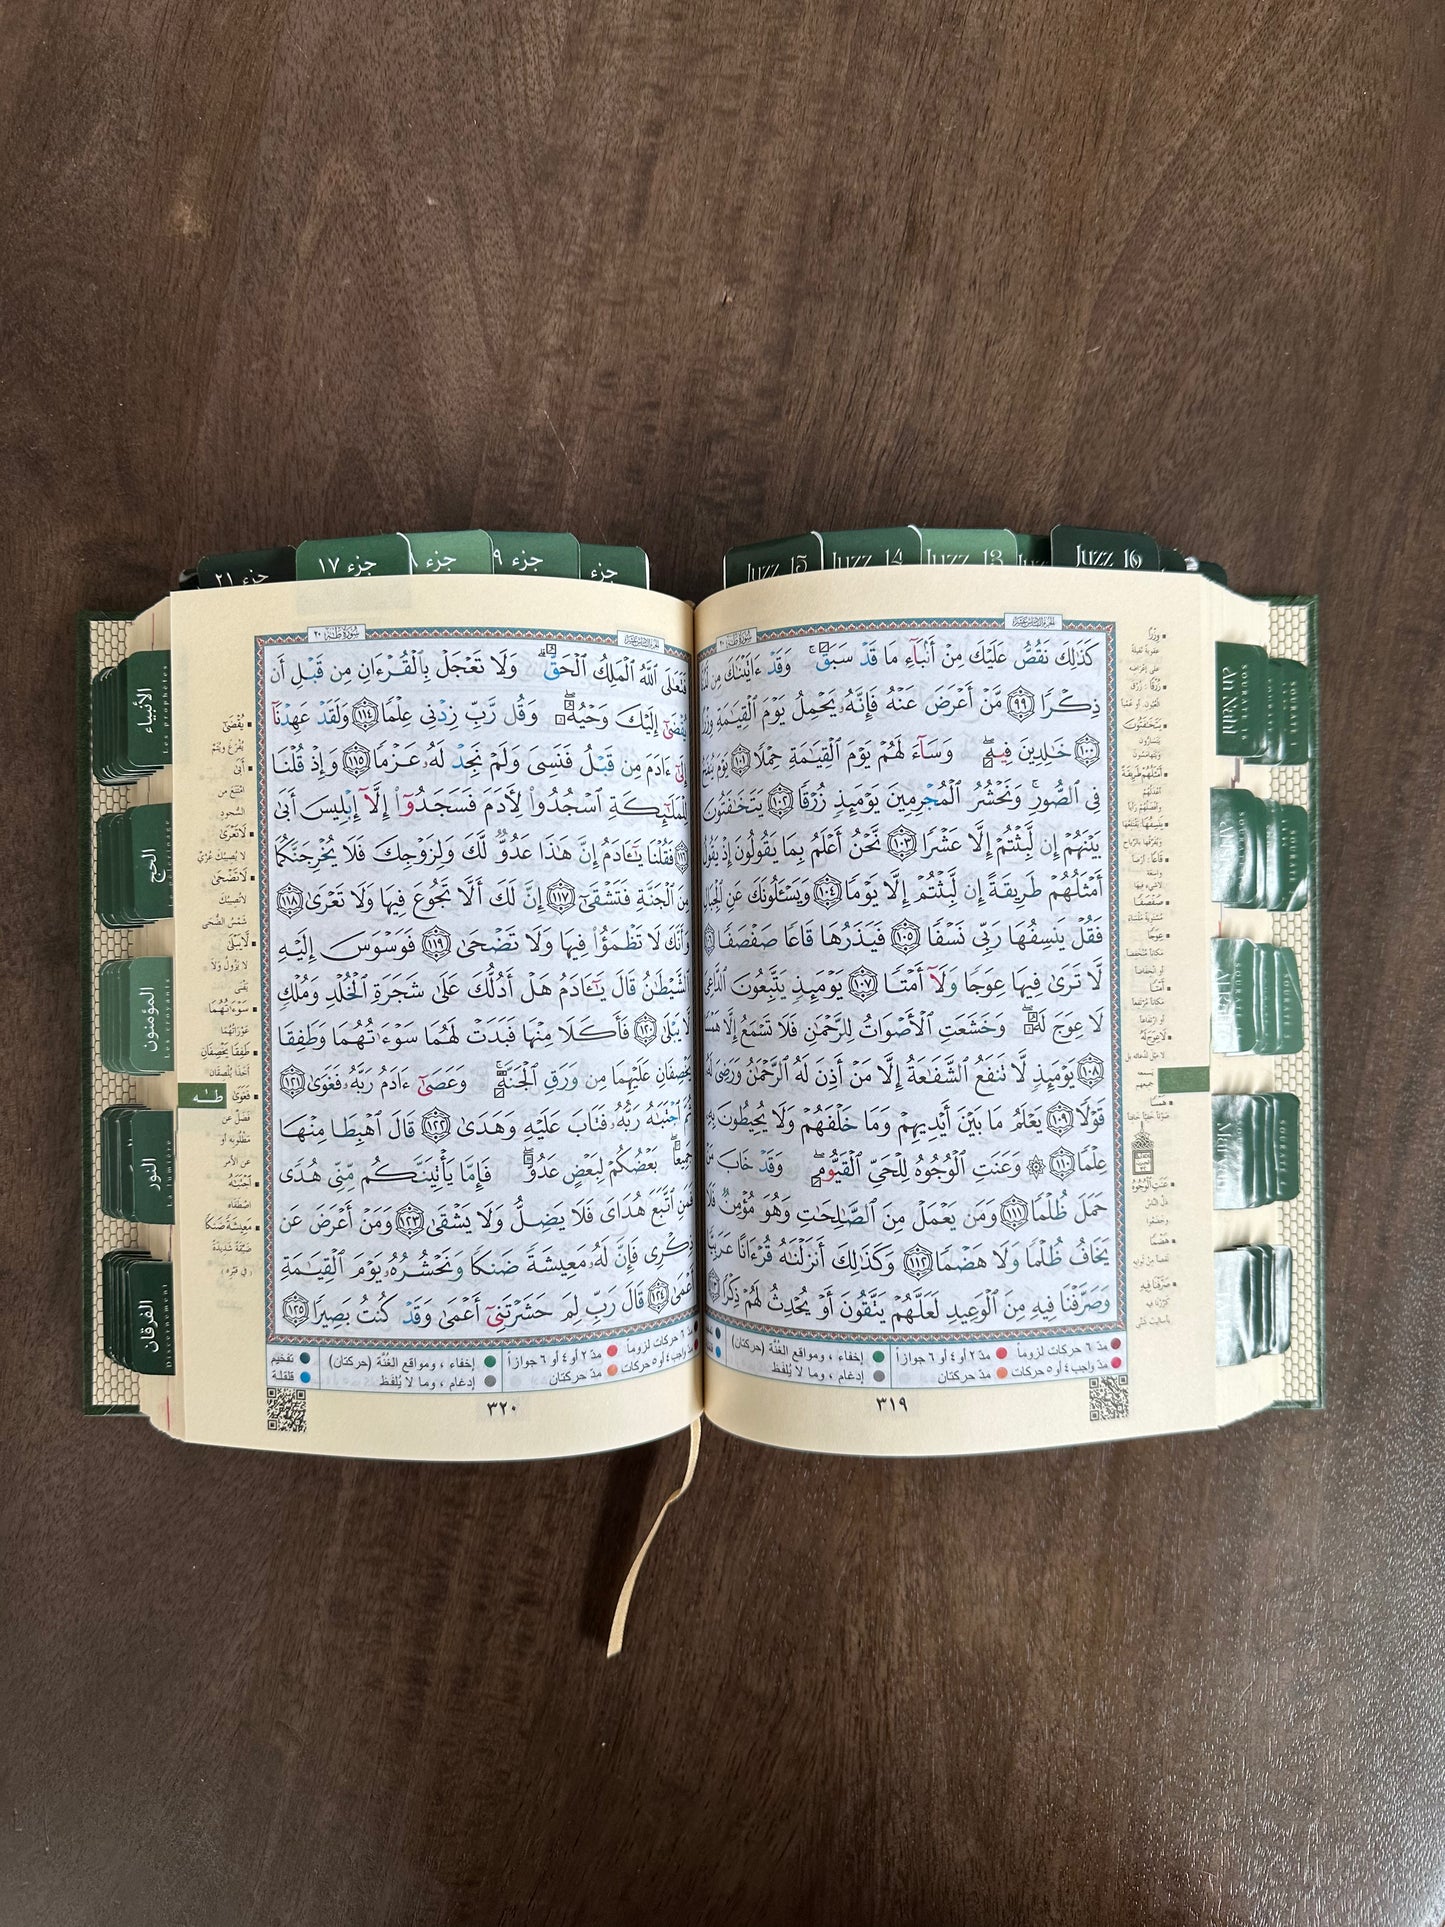 جزء ٢١
جزء ١٧
جزء
جزء ٩
جزء
Juzz 15
Juzz 14
Juzz 13
Juzz 16
سُورَةُ طه ٢٠
كَذَٰلِكَ نَقُصُّ عَلَيْكَ مِنْ أَنۢبَآءِ مَا قَدْ سَبَقَ ۚ وَقَدْ ءَاتَيْنَٰكَ مِن
ذِكْرًا ٩٩ مَّنْ أَعْرَضَ عَنْهُ فَإِنَّهُۥ يَحْمِلُ يَوْمَ ٱلْقِيَٰمَةِ وِزْرًا
١٠٠ خَٰلِدِينَ فِيهِ ۖ وَسَآءَ لَهُمْ يَوْمَ ٱلْقِيَٰمَةِ حِمْلًا ١٠١ يَوْمَ يُنفَخُ
فِى ٱلصُّورِ ۚ وَنَحْشُرُ ٱلْمُجْرِمِينَ يَوْمَئِذٍ زُرْقًا ١٠٢ يَتَخَٰفَتُونَ
بَيْنَهُمْ إِن لَّبِثْتُمْ إِلَّا عَشْرًا ١٠٣ نَّحْنُ أَعْلَمُ بِمَا يَقُولُونَ إِذْ يَقُولُ
أَمْثَلُهُمْ طَرِيقَةً إِن لَّبِثْتُمْ إِلَّا يَوْمًا ١٠٤ وَيَسْـَٔلُونَكَ عَنِ ٱلْجِبَالِ
فَقُلْ يَنسِفُهَا رَبِّى نَسْفًا ١٠٥ فَيَذَرُهَا قَاعًا صَفْصَفًا
لَّا تَرَىٰ فِيهَا عِوَجًا وَلَآ أَمْتًا ١٠٧ يَوْمَئِذٍ يَتَّبِعُونَ ٱلدَّاعِىَ
لَا عِوَجَ لَهُۥ ۖ وَخَشَعَتِ ٱلْأَصْوَاتُ لِلرَّحْمَٰنِ فَلَا تَسْمَعُ إِلَّا هَمْسًا
١٠٨ يَوْمَئِذٍ لَّا تَنفَعُ ٱلشَّفَٰعَةُ إِلَّا مَنْ أَذِنَ لَهُ ٱلرَّحْمَٰنُ وَرَضِىَ لَهُۥ
قَوْلًا ١٠٩ يَعْلَمُ مَا بَيْنَ أَيْدِيهِمْ وَمَا خَلْفَهُمْ وَلَا يُحِيطُونَ بِهِۦ
عِلْمًا ١١٠ ۞ وَعَنَتِ ٱلْوُجُوهُ لِلْحَىِّ ٱلْقَيُّومِ ۖ وَقَدْ خَابَ مَنْ
حَمَلَ ظُلْمًا ١١١ وَمَن يَعْمَلْ مِنَ ٱلصَّٰلِحَٰتِ وَهُوَ مُؤْمِنٌ فَلَا
يَخَافُ ظُلْمًا وَلَا هَضْمًا ١١٢ وَكَذَٰلِكَ أَنزَلْنَٰهُ قُرْءَانًا عَرَبِيًّا
وَصَرَّفْنَا فِيهِ مِنَ ٱلْوَعِيدِ لَعَلَّهُمْ يَتَّقُونَ أَوْ يُحْدِثُ لَهُمْ ذِكْرًا
مدّ ٦ حركات لزوماً مدّ ٢ أو ٤ أو ٦ جوازاً إخفاء ، ومواقع الغُنَّة (حركتان)
مدّ واجب ٤ أو ٥ حركات مدّ حركتان إدغام ، وما لا يُلفظ
٣١٩
سُورَةُ طه ٢٠
فَتَعَٰلَى ٱللَّهُ ٱلْمَلِكُ ٱلْحَقُّ ۗ وَلَا تَعْجَلْ بِٱلْقُرْءَانِ مِن قَبْلِ أَن
يُقْضَىٰٓ إِلَيْكَ وَحْيُهُۥ ۖ وَقُل رَّبِّ زِدْنِى عِلْمًا ١١٤ وَلَقَدْ عَهِدْنَآ
إِلَىٰٓ ءَادَمَ مِن قَبْلُ فَنَسِىَ وَلَمْ نَجِدْ لَهُۥ عَزْمًا ١١٥ وَإِذْ قُلْنَا
لِلْمَلَٰٓئِكَةِ ٱسْجُدُوا۟ لِـَٔادَمَ فَسَجَدُوٓا۟ إِلَّآ إِبْلِيسَ أَبَىٰ
١١٦ فَقُلْنَا يَٰٓـَٔادَمُ إِنَّ هَٰذَا عَدُوٌّ لَّكَ وَلِزَوْجِكَ فَلَا يُخْرِجَنَّكُمَا
مِنَ ٱلْجَنَّةِ فَتَشْقَىٰٓ ١١٧ إِنَّ لَكَ أَلَّا تَجُوعَ فِيهَا وَلَا تَعْرَىٰ ١١٨
وَأَنَّكَ لَا تَظْمَؤُا۟ فِيهَا وَلَا تَضْحَىٰ ١١٩ فَوَسْوَسَ إِلَيْهِ
ٱلشَّيْطَٰنُ قَالَ يَٰٓـَٔادَمُ هَلْ أَدُلُّكَ عَلَىٰ شَجَرَةِ ٱلْخُلْدِ وَمُلْكٍ
لَّا يَبْلَىٰ ١٢٠ فَأَكَلَا مِنْهَا فَبَدَتْ لَهُمَا سَوْءَٰتُهُمَا وَطَفِقَا
يَخْصِفَانِ عَلَيْهِمَا مِن وَرَقِ ٱلْجَنَّةِ ۚ وَعَصَىٰٓ ءَادَمُ رَبَّهُۥ فَغَوَىٰ ١٢١
ثُمَّ ٱجْتَبَٰهُ رَبُّهُۥ فَتَابَ عَلَيْهِ وَهَدَىٰ ١٢٢ قَالَ ٱهْبِطَا مِنْهَا
جَمِيعًۢا ۖ بَعْضُكُمْ لِبَعْضٍ عَدُوٌّ ۖ فَإِمَّا يَأْتِيَنَّكُم مِّنِّى هُدًى
فَمَنِ ٱتَّبَعَ هُدَاىَ فَلَا يَضِلُّ وَلَا يَشْقَىٰ ١٢٣ وَمَنْ أَعْرَضَ عَن
ذِكْرِى فَإِنَّ لَهُۥ مَعِيشَةً ضَنكًا وَنَحْشُرُهُۥ يَوْمَ ٱلْقِيَٰمَةِ
أَعْمَىٰ ١٢٤ قَالَ رَبِّ لِمَ حَشَرْتَنِىٓ أَعْمَىٰ وَقَدْ كُنتُ بَصِيرًا ١٢٥
مدّ ٦ حركات لزوماً مدّ ٢ أو ٤ أو ٦ جوازاً إخفاء ، ومواقع الغُنَّة (حركتان) تفخيم
مدّ واجب ٤ أو ٥ حركات مدّ حركتان إدغام ، وما لا يُلفظ قلقلة
٣٢٠
يُقْضَىٰ
أَبَىٰ
امْتَنَعَ مِن
السُّجُودِ
لَا تَعْرَىٰ
لَا تَضْحَىٰ
لَا يَبْلَىٰ
سَوْءَٰتُهُمَا
عَوْرَاتُهُمَا
طَفِقَا يَخْصِفَانِ
طه
فَغَوَىٰ
اجْتَبَٰهُ
اصْطَفَاهُ
مَعِيشَةً ضَنكًا
ضَيِّقَةً شَدِيدَةً
الأنبياء
Les prophètes
الحج
المؤمنون
Les croyants
النور
La lumière
الفرقان
Discernement
SOURATE
An Nahl